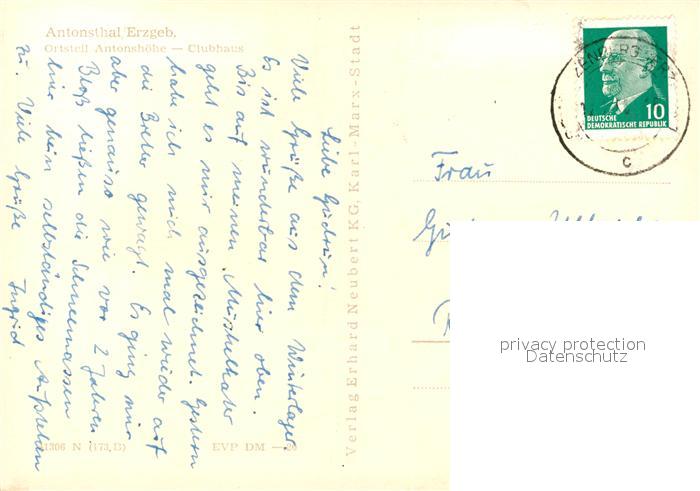 Antonsthal/Erzgeb.
Ortsteil Antonshöhe — Clubhaus
Liebe Gudrun!
Viele Grüße aus dem Winterlager.
Es ist wunderbar hier oben.
Bis auf meinen Muskelkater
geht es mir ausgezeichnet. Gestern
habe ich mich mal wieder auf
die Bretter gewagt. Es ging mir
aber genauso wie vor 2 Jahren.
Bloß ließen die Schneemassen
hier kein selbständiges Aufstehen
zu. Viele Grüße Ingrid
1306 N (173,B)
EVP DM —20
Verlag Erhard Neubert KG, Karl-Marx-Stadt
10
DEUTSCHE
DEMOKRATISCHE REPUBLIK
c
Frau
privacy protection
Datenschutz